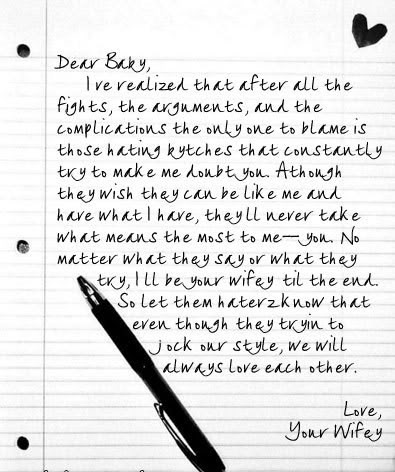 Dear Baby,
I ve realized that after all the
fights, the arguments, and the
complications the only one to blame is
those hating bytches that constantly
try to make me doubt you. Athough
they wish they can be like me and
have what I have, they ll never take
what means the most to me—you. No
matter what they say or what they
try, I ll be your wifey til the end.
So let them haterz know that
even though they tryin to
jock our style, we will
always love each other.
Love,
Your Wifey